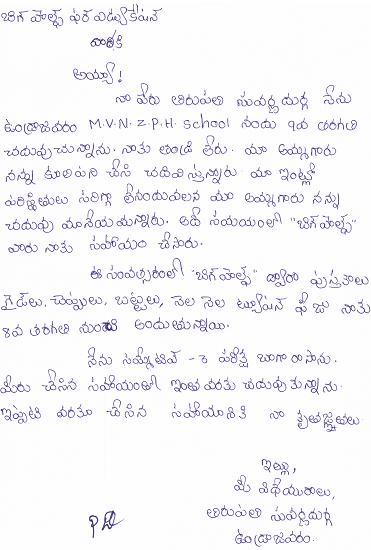 బిగ్ హెల్ప్ ఫర్ ఎడ్యుకేషన్
వారికి
అయ్యా!
నా పేరు తిరుపతి సువర్ణదుర్గ నేను
ఉండ్రాజవరం M.V.N.Z.P.H. School నందు 9వ తరగతి
చదువుచున్నాను. నాకు తండ్రి లేరు. మా అమ్మగారు
నన్ను కూలిపని చేసి చదివిస్తున్నారు. మా ఇంట్లో
పరిస్థితులు సరిగ్గా లేనందువలన మా అమ్మగారు నన్ను
చదువు మానేయమన్నారు. అదే సమయంలో "బిగ్ హెల్ప్"
వారు నాకు సహాయం చేసారు.
ఈ సంవత్సరంలో "బిగ్ హెల్ప్" ద్వారా పుస్తకాలు
గైడ్లు, చెప్పులు, బట్టలు, నెల నెల ట్యూషన్ ఫీజు నాకు
8వ తరగతి నుండి అందుతున్నాయి.
నేను సమ్మేటివ్ - 3 పరీక్ష బాగా రాసాను.
మీరు చేసిన సహాయంతో ఇంతవరకు చదువుతున్నాను.
ఇప్పటి వరకూ చేసిన సహాయానికి నా కృతజ్ఞతలు
ఇట్లు,
మీ విధేయురాలు,
తిరుపతి సువర్ణదుర్గ
ఉండ్రాజవరం.